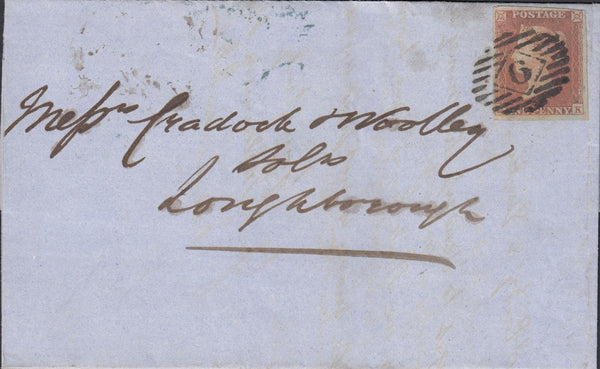 POSTAGE
Messrs Cradock & Woolley
Solrs
Loughborough